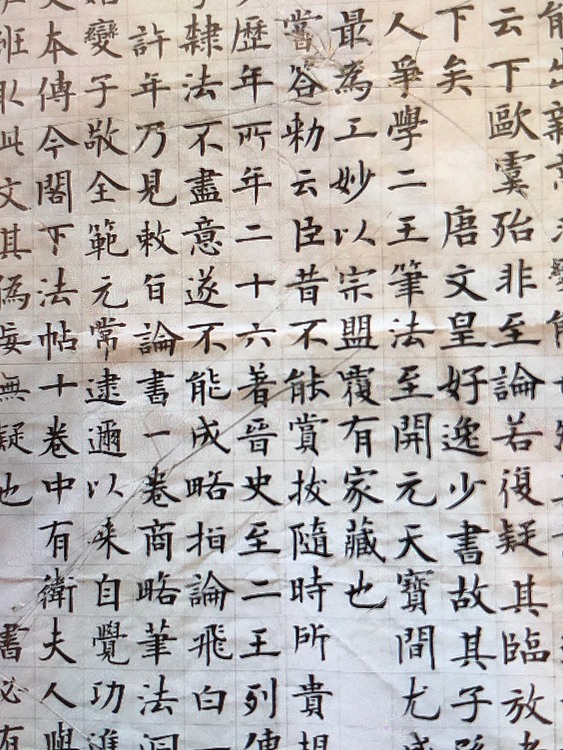 能出新意
云下歐虞殆非至論若復疑其臨放
下矣 唐文皇好逸少書故其子孫
人爭學二王筆法至開元天寶間尤盛
最為工妙以宗盟覆有家藏也
嘗答勑云臣昔不能賞拔隨時所貴規
歷年所年二十六著晉史至二王列傳
隸法不盡意遂不能成略指論飛白一
許年乃見敕旨論書一卷商略筆法洞
變子敬全範元常逮邇以來自覺功進
本傳今閣下法帖十卷中有衛夫人與
此文其偽妄無疑也 書必有